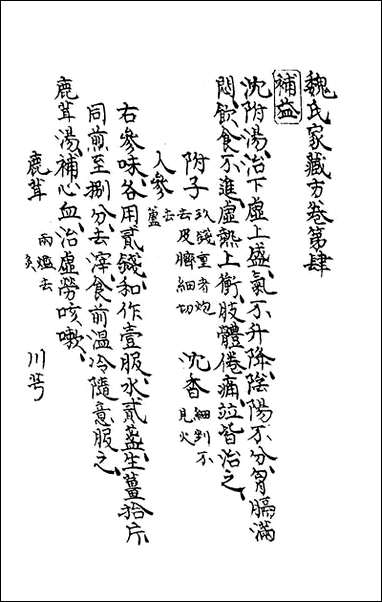 魏氏家藏方卷第肆
補益
沈附湯、治下虛上盛、氣不升降、陰陽不分、胷膈滿
悶、飲食不進、虛熱上衝、肢體倦痛、竝皆治之、
附子 玖錢重者炮去皮臍細切 沈香 細剉不見火
人參 去蘆
右參味、各用貳錢、和作壹服、水貳盞、生薑拾片
同煎至捌分、去滓、食前溫冷隨意服之、
鹿茸湯、補心血、治虛勞咳嗽、
鹿茸 兩爁去灸 川芎